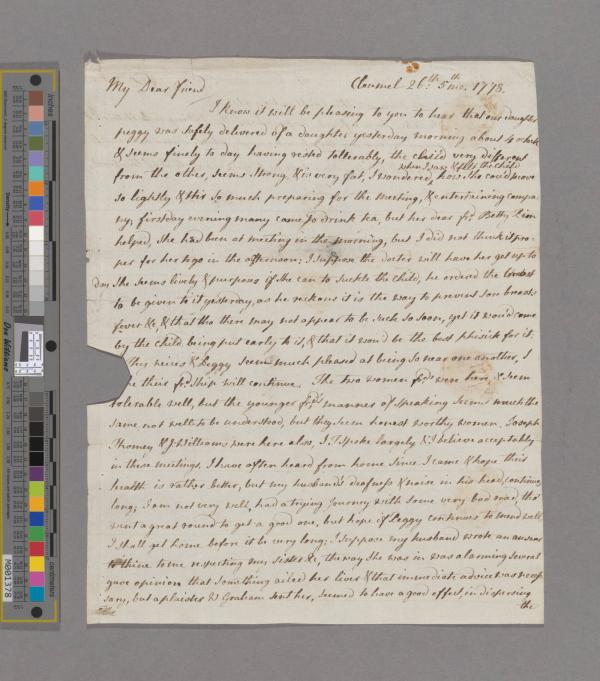 My Dear Friend Clonmel 26th: 5th mo: 1778.
I know it will be pleasing to you to hear that our daughter
peggy was safely delivered of a daughter yesterday morning about 4 o clock
& seems finely to day having rested tollerably, the child very different
when I saw & felt the child
from the other, seems strong, & is very fat, I wondered, how she could move
so lightly & stir so much preparing for the meeting, & entertaining compa
ny, first day evening many came to drink tea, but her dear frd: Betty Pim
helped, she had been at meeting in the morning, but I did not think it pro-
per for her to go in the afternoon; I suppose the doctor will have her get up to
day, she seems lively & purposes if she can to suckle the child, he ordered the breast
to be given to it yesterday, as he reckons it is the way to prevent sore breasts
fever &c, & that tho there may not appear to be suck so soon, yet it would come
by the child being put early to it, & that it wou'd be the best phisick for it.
neices & Peggy seem much pleased at being so near one another, I
their frdship will continue. The two women frds were here, & seem
tolerable well, but the younger frds manner of speaking seems much the
same, not well to be understood, but they seem honest worthy women. Joseph
Thomey & J: Williams were here also, J: T: spoke largely & I believe acceptably
in these meetings. I have often heard from home since I came & hope their
health is rather better, but my husband's deafness & noise in his head continue
long; I am not very well, had a trying journey with some very bad road, tho'
went a great round to get a good one, but hope if Peggy continues to mend well
I shall get home before it be very long; I suppose my husband wrote an answer
to thine to me respecting my sister &c, the way she was in was alarming several
gave opinion that something ailed her liver & that immediate advice was neces
sary, but a plaister D Graham sent her, seemed to have a good effect, in dispersing
the